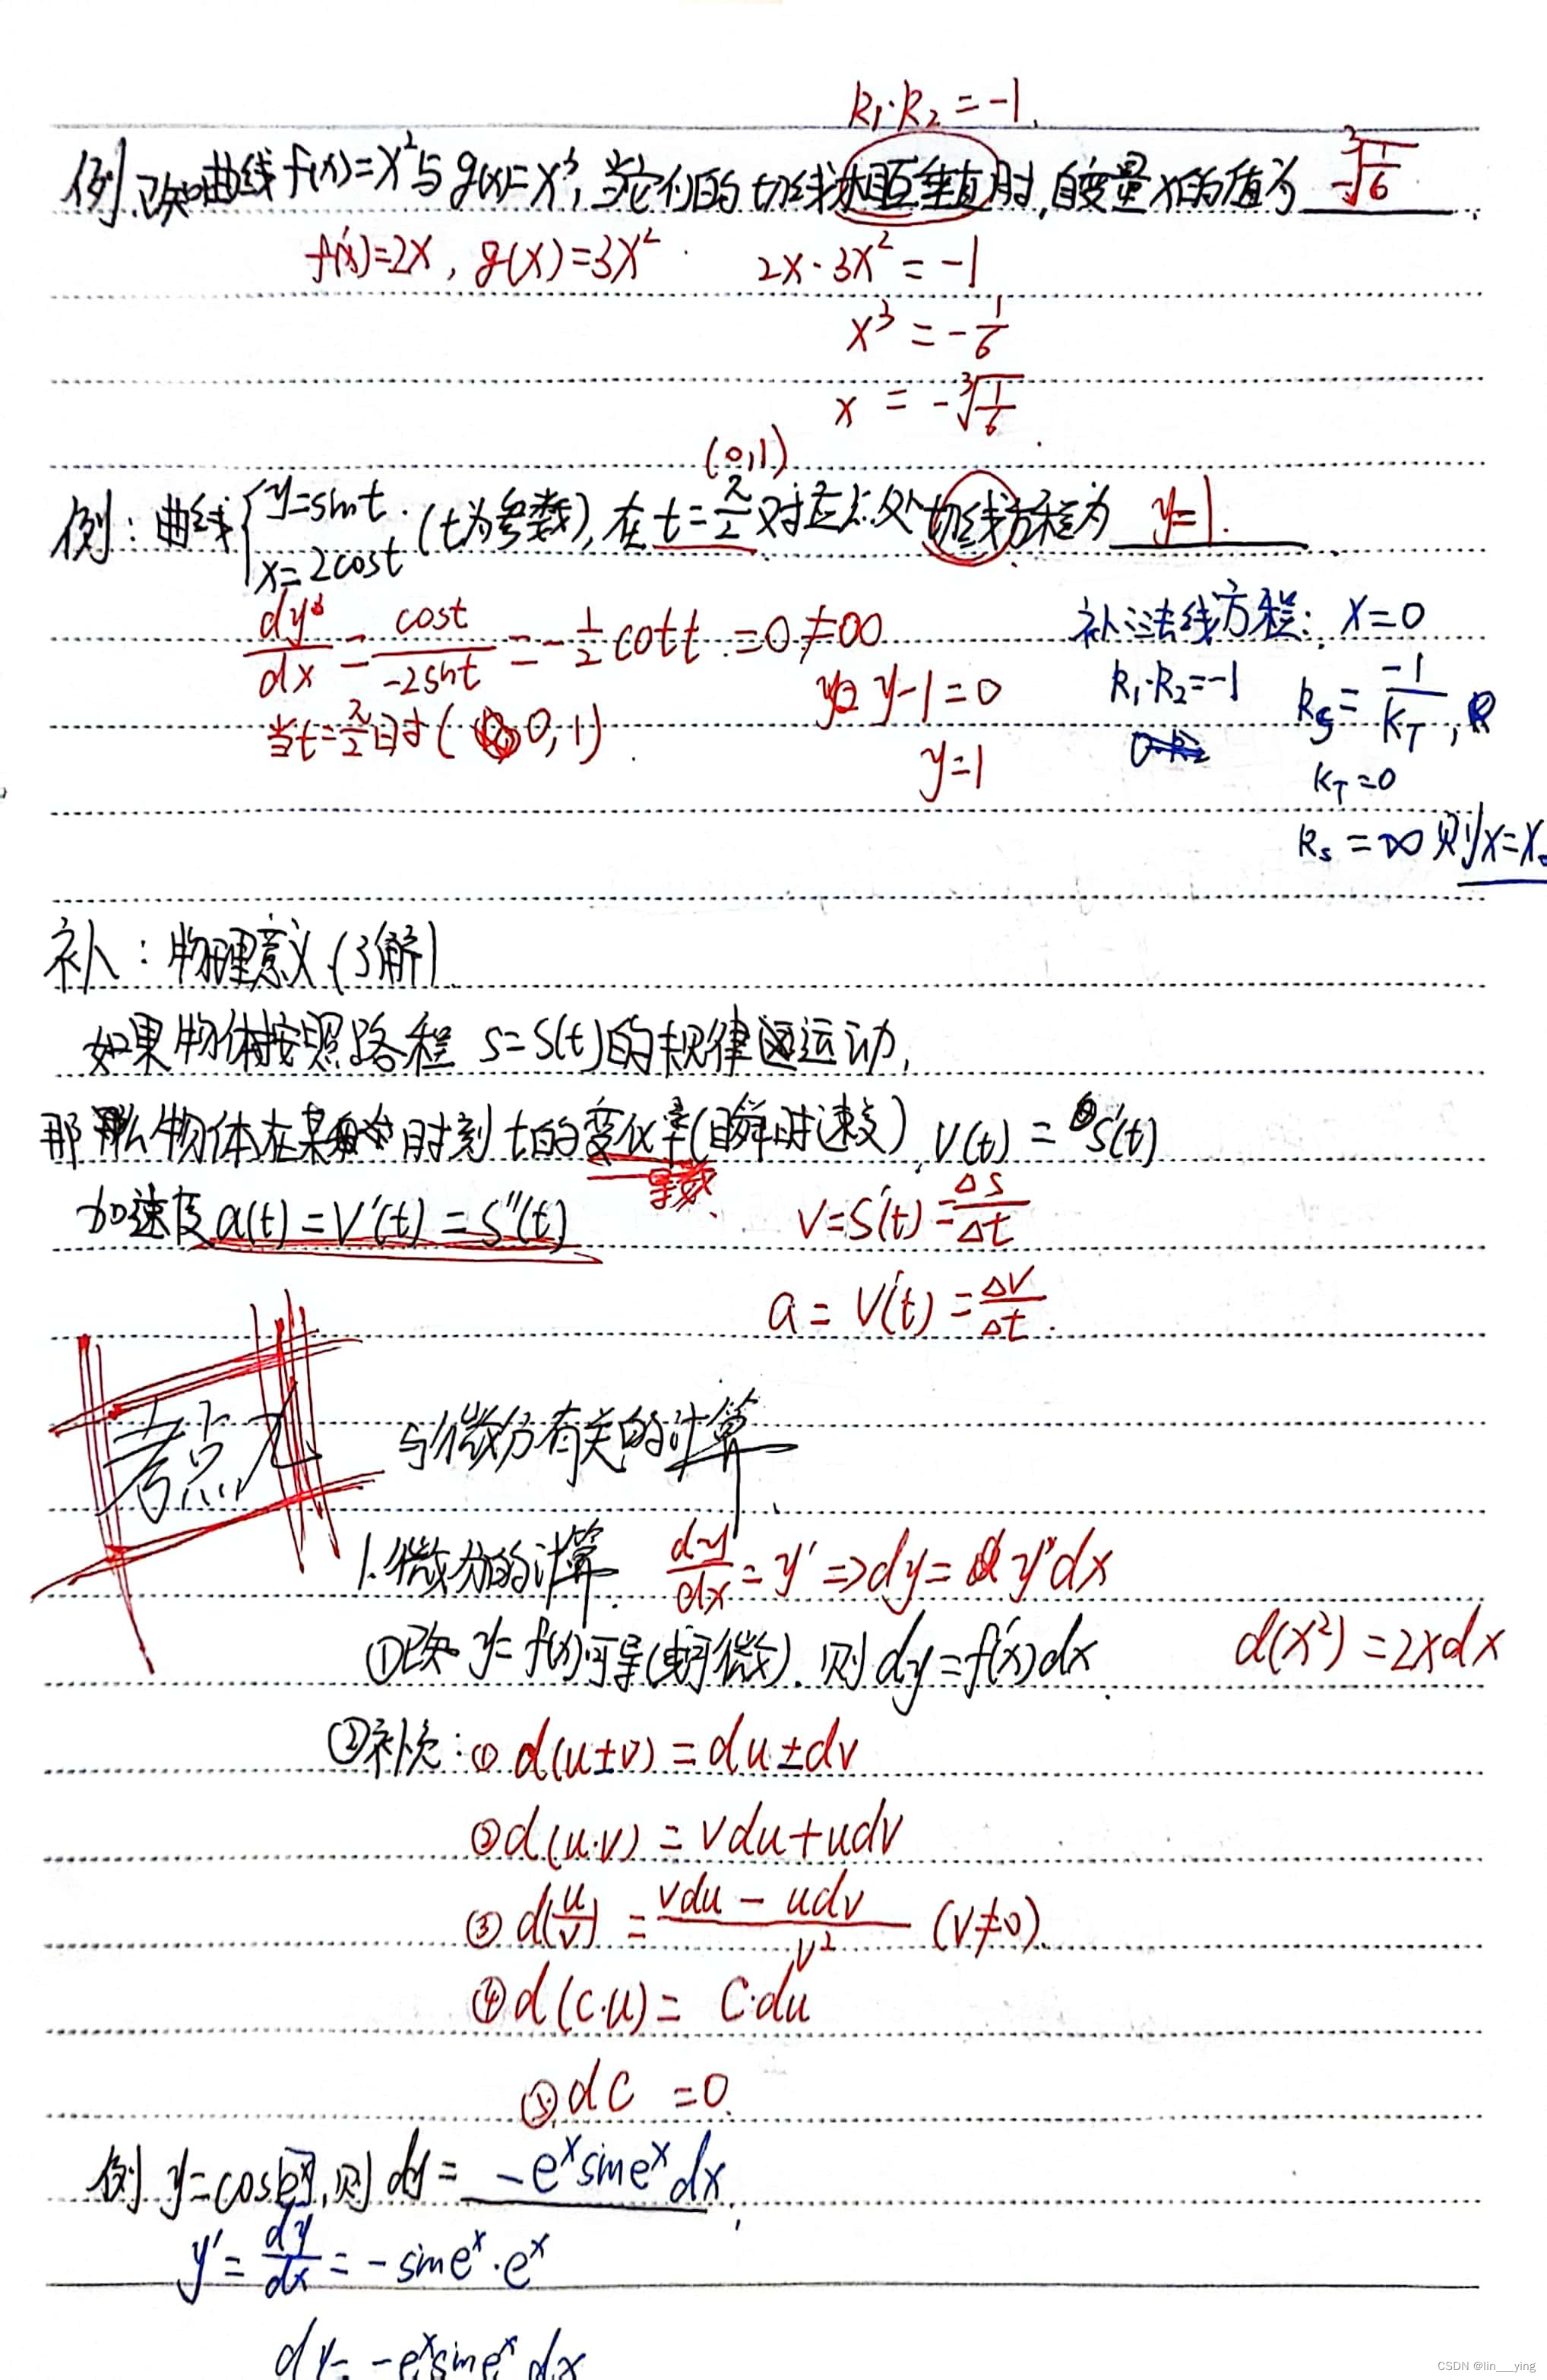 k₁·k₂=-1
例.已知曲线f(x)=x²与g(x)=x³,当它们的切线相互垂直时,自变量x的值为 -∛(1/6)
f'(x)=2x, g(x)=3x² 2x·3x²=-1
x³=-1/6
x=-∛(1/6)
(0,1)
例:曲线{y=sint. x=2cost (t为参数),在t=π/2对应点处切线方程为 y=1.
dy/dx=cost/-2sint=-1/2cott=0≠∞ 补:法线方程: x=0
当t=π/2时(0,1) y-1=0 k₁·k₂=-1 ks=-1/kT,
y=1 kT=0
ks=∞则x=x₀
补:物理意义.(了解)
如果物体按照路程 s=s(t)的规律运动,
那么物体在某时刻t的变化率(瞬时速度),v(t)=s'(t)
导数.
加速度a(t)=v'(t)=s''(t) v=s'(t)=Δs/Δt
a=v'(t)=Δv/Δt.
考点九 与微分有关的计算
1.微分的计算. dy/dx=y'=>dy=y'dx
①已知y=f(x)可导(或可微).则dy=f'(x)dx. d(x²)=2xdx
②补充:① d(u±v)=du±dv
②d(u·v)=vdu+udv
③d(u/v)=(vdu-udv)/v² (v≠0).
④d(c·u)=c·du
⑤dc=0.
例 y=cos(eˣ),则dy=-eˣsineˣdx.
y'=dy/dx=-sineˣ·eˣ
dy=-eˣsineˣdx
CSDN @lin___ying